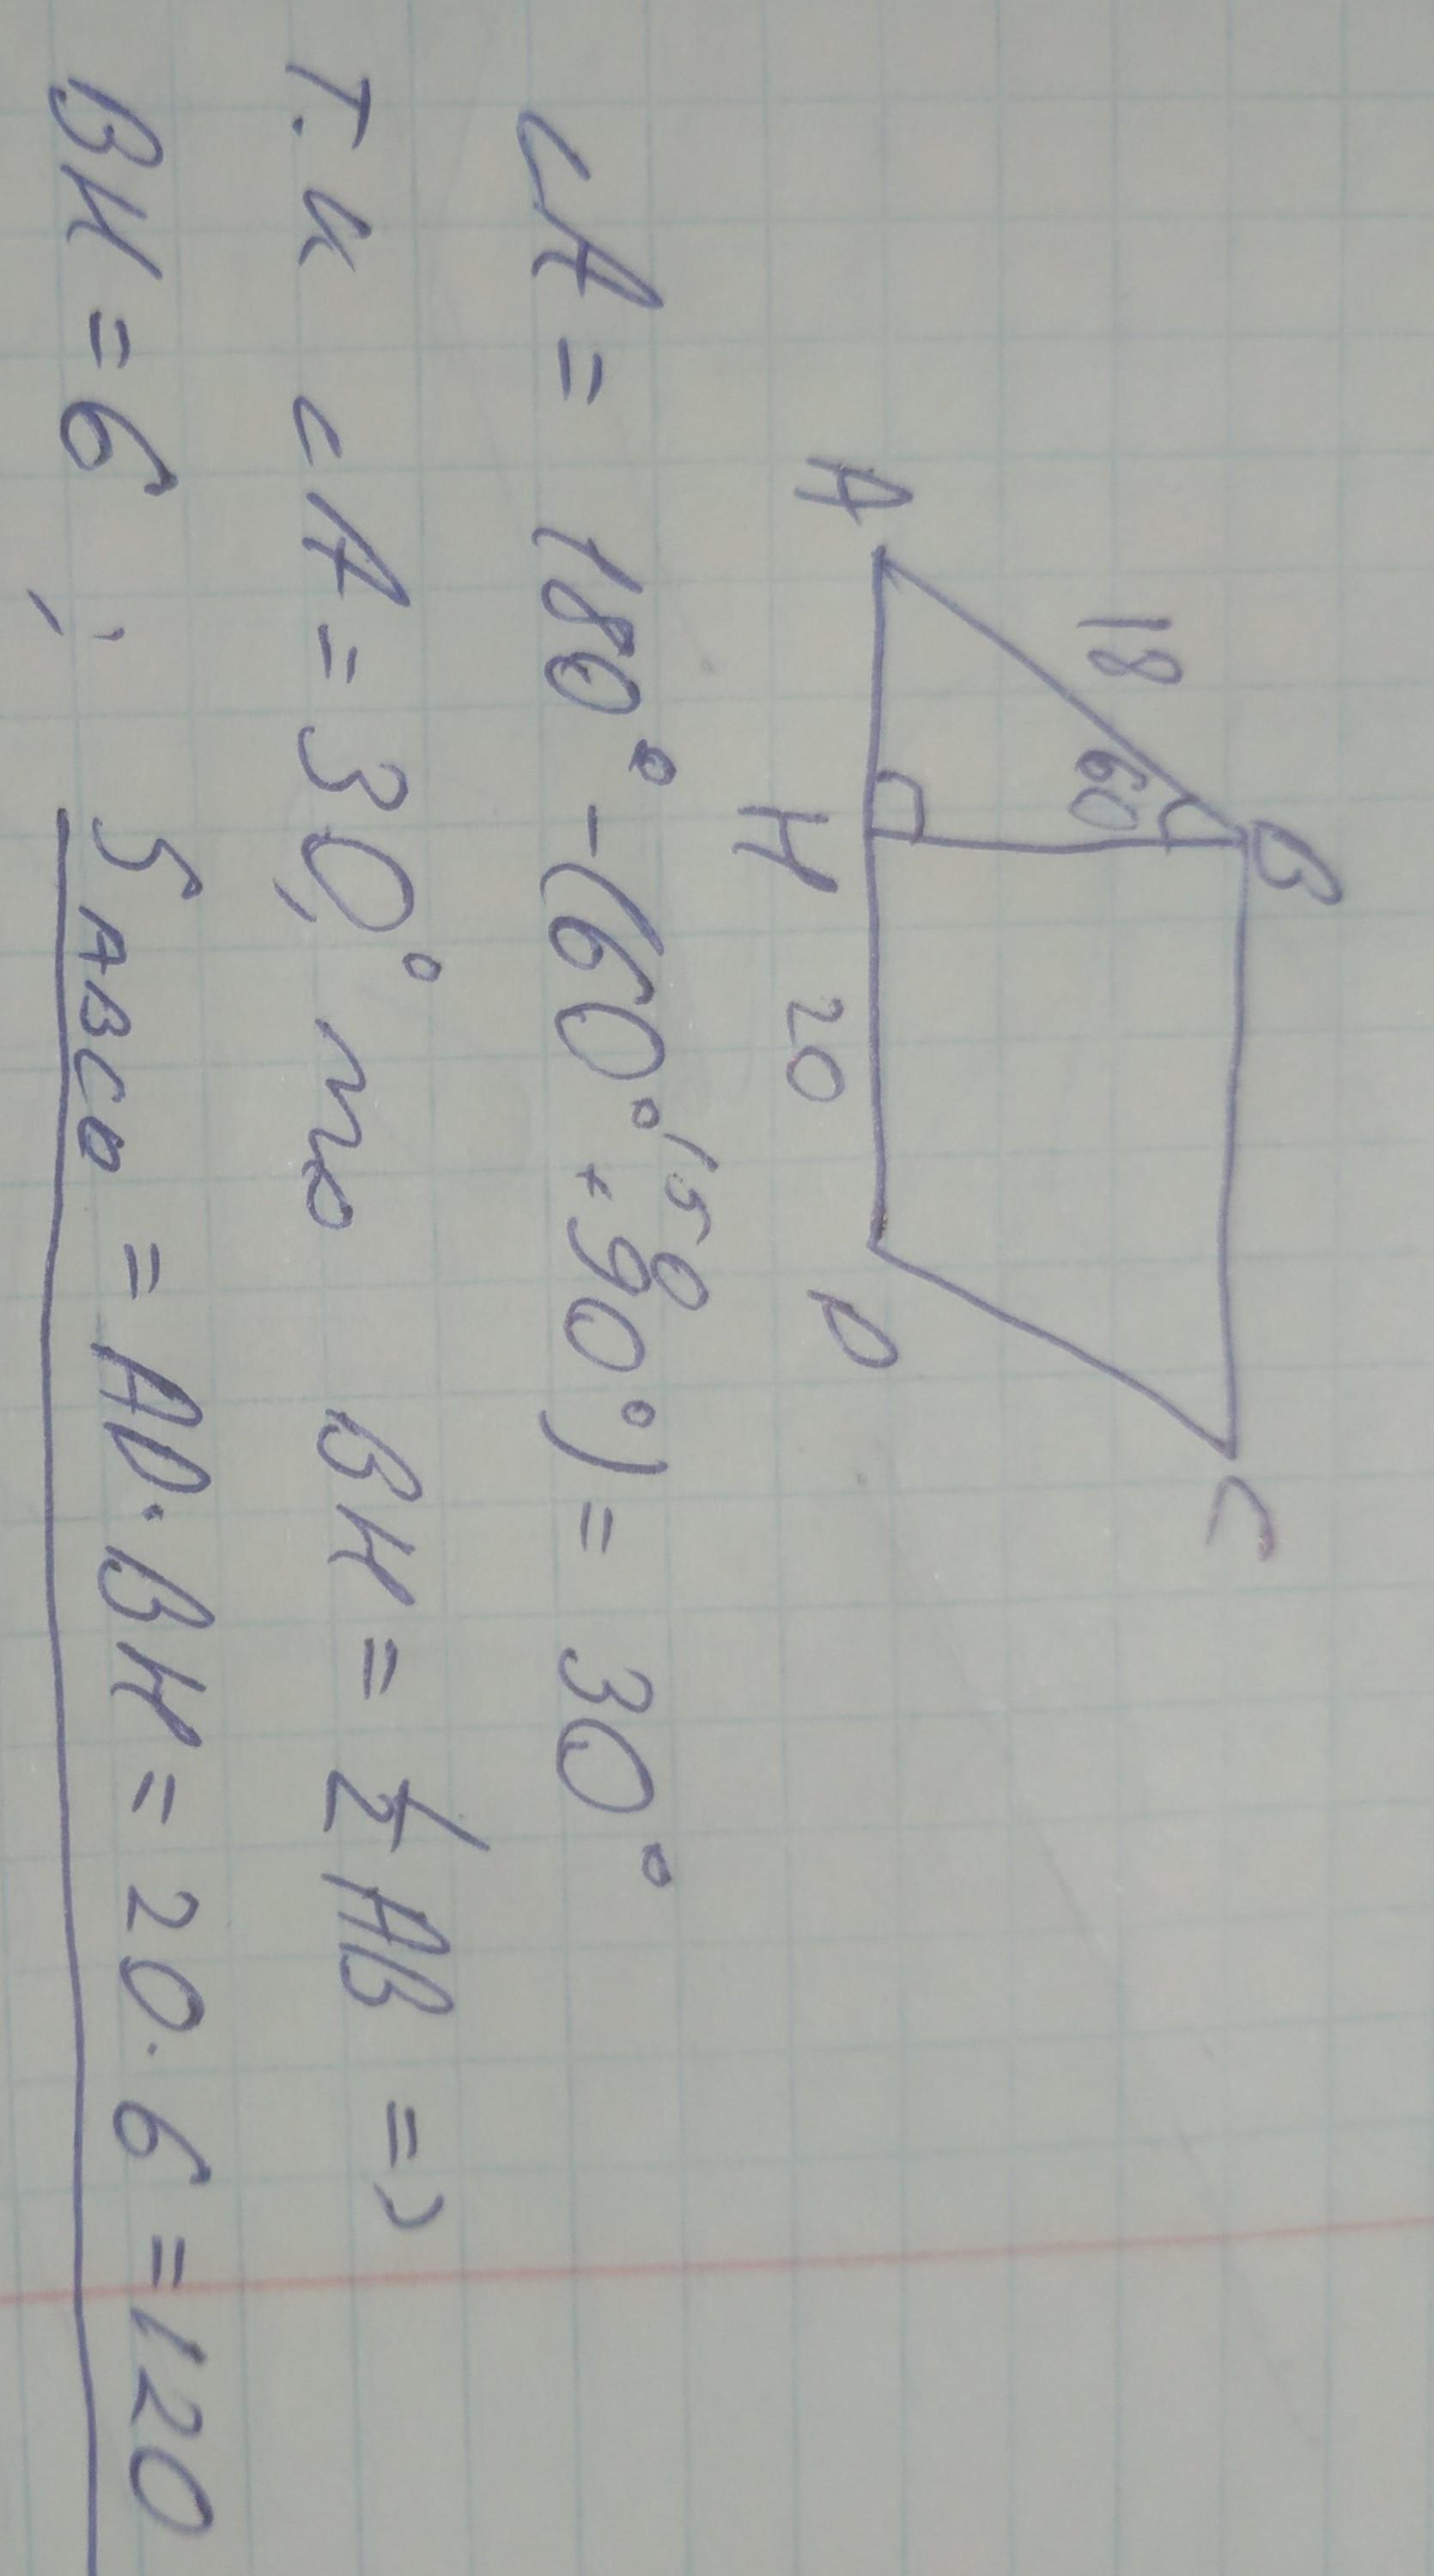 B
C
18
60
A
H
20
D
∠A = 180° - (60° + 90°) = 30°
150
Т.к ∠A = 30°, то BH = 1/2 AB =>
BH = 6; S ABCD = AD · BH = 20 · 6 = 120